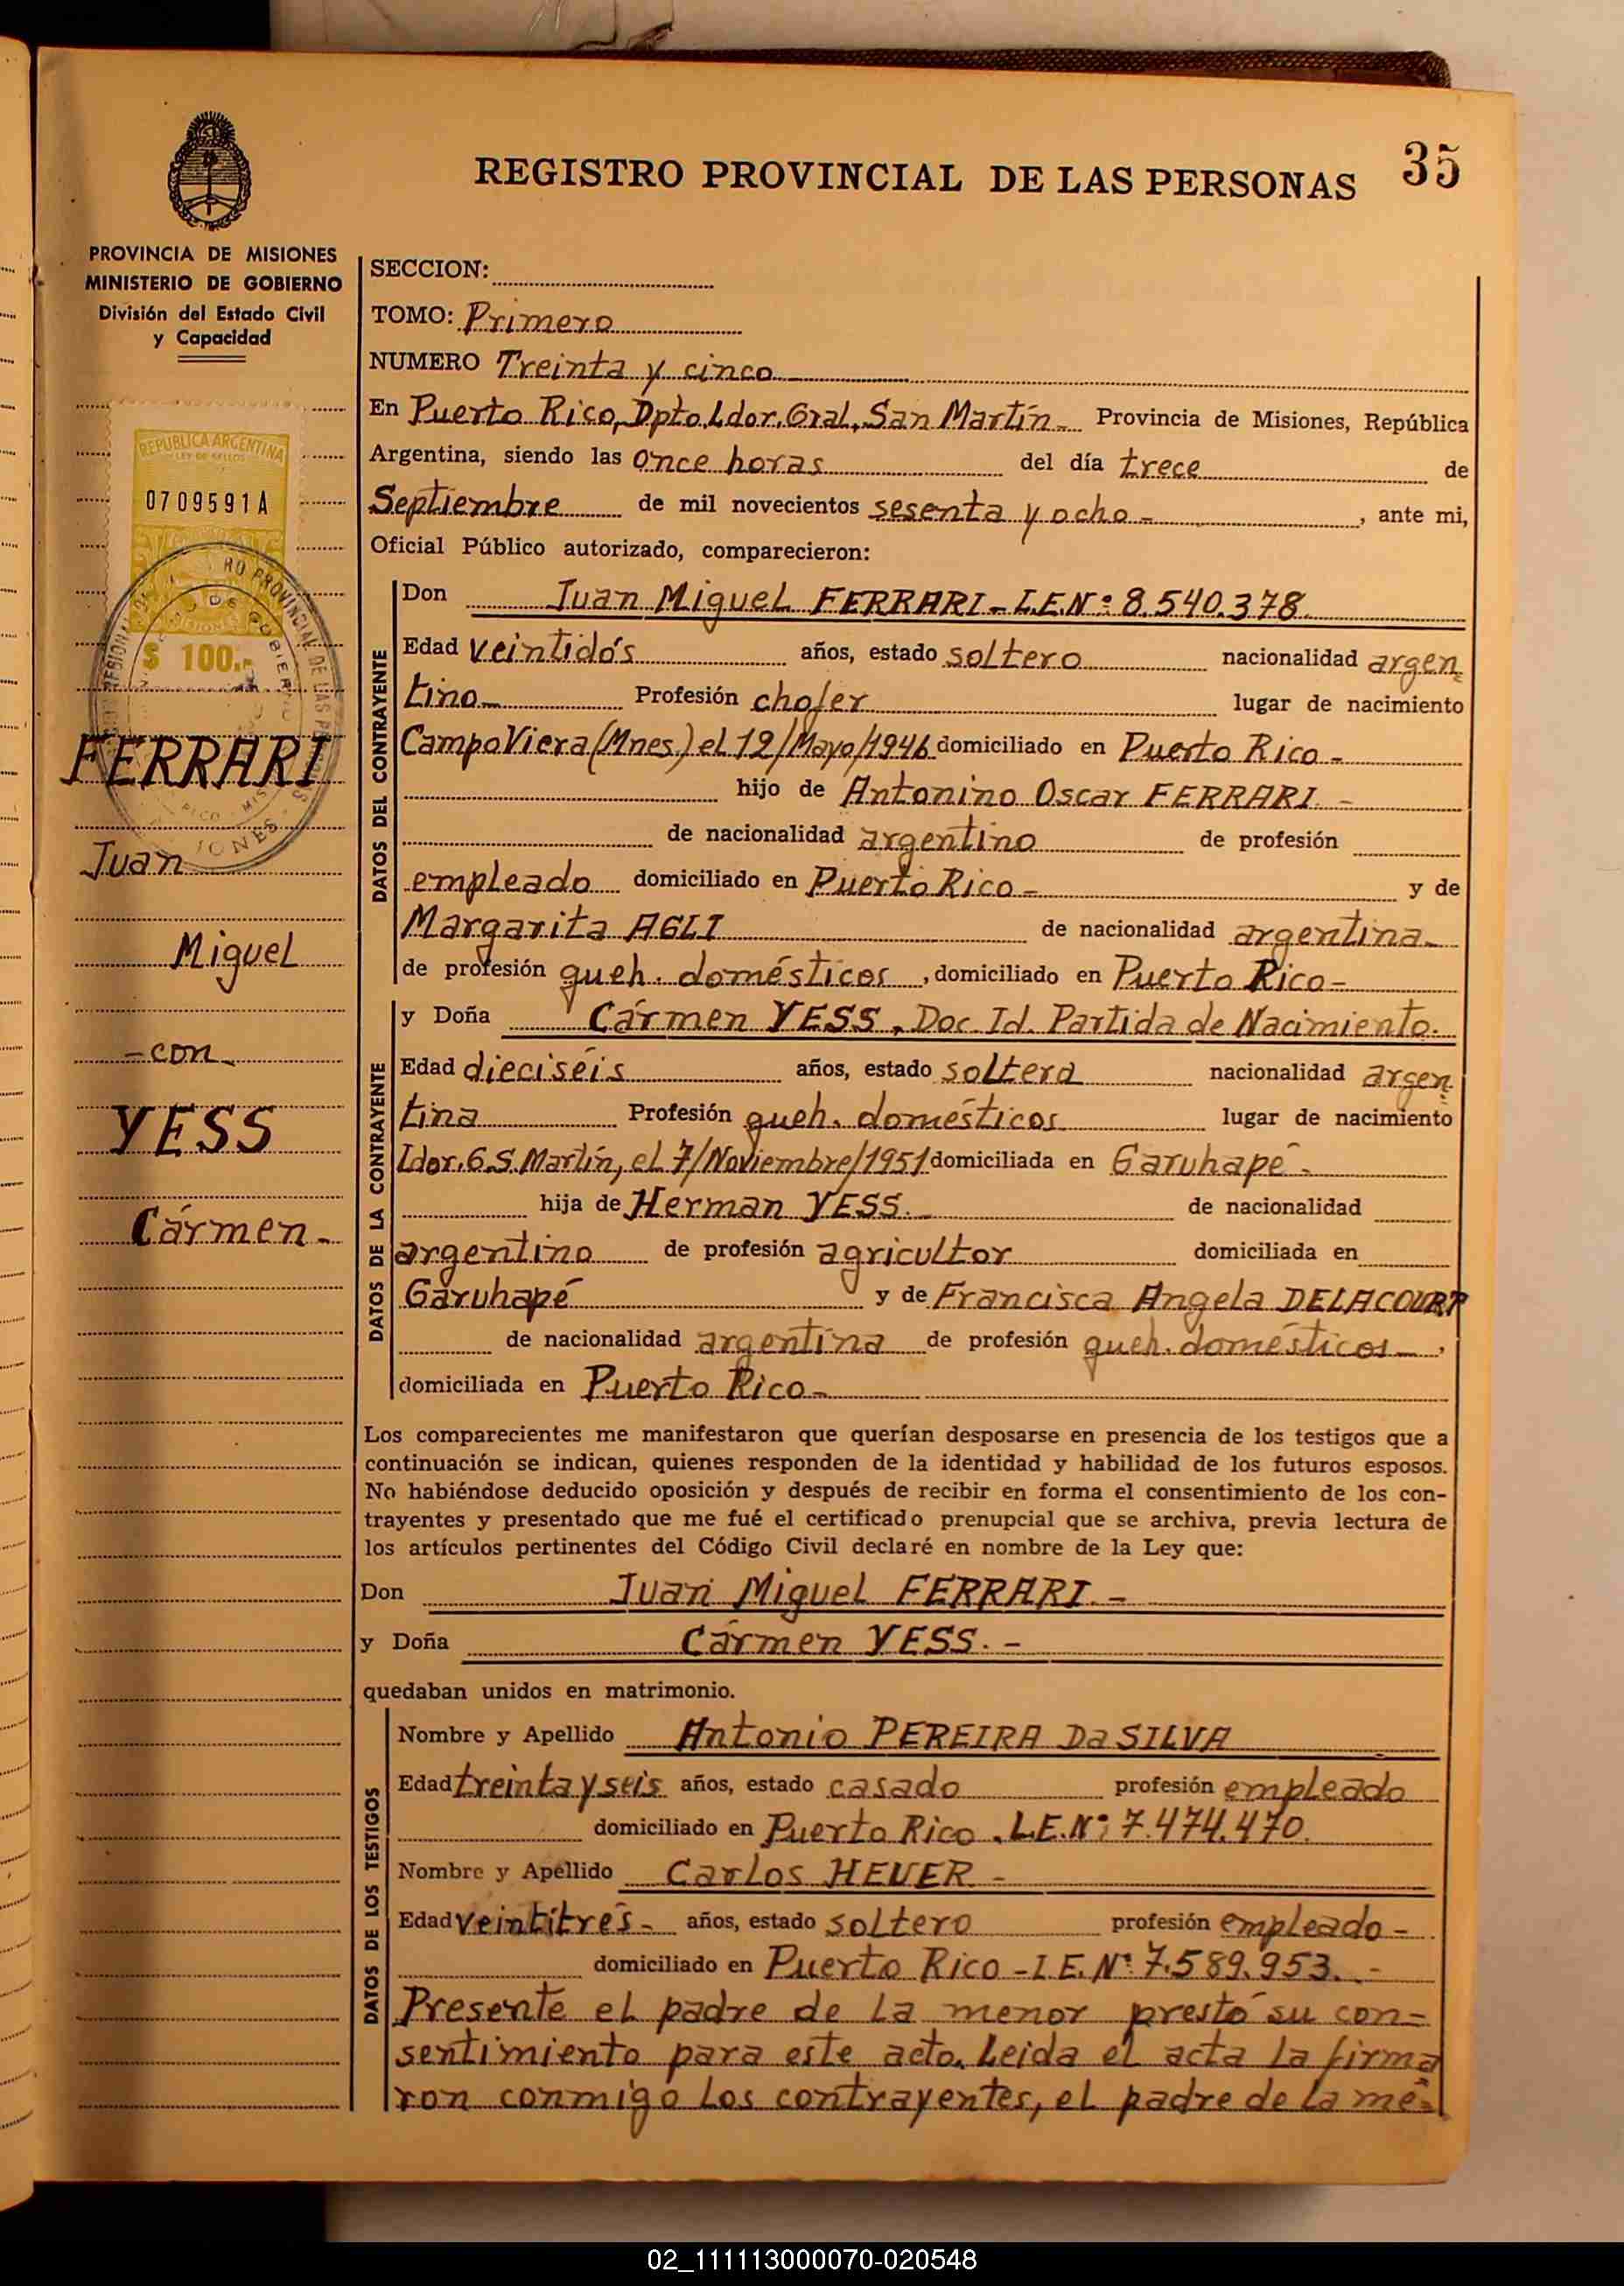 35
REGISTRO PROVINCIAL DE LAS PERSONAS
PROVINCIA DE MISIONES
MINISTERIO DE GOBIERNO
División del Estado Civil
y Capacidad
REPUBLICA ARGENTINA
LEY DE SELLOS
0709591A
$ 100.-
FERRARI
Juan
Miguel
-con-
YESS
Cármen-
SECCION:
TOMO: Primero
NUMERO Treinta y cinco
En Puerto Rico, Dpto. Ldor. Gral. San Martín- Provincia de Misiones, República
Argentina, siendo las once horas del día trece de
Septiembre de mil novecientos sesenta y ocho- , ante mi,
Oficial Público autorizado, comparecieron:
DATOS DEL CONTRAYENTE
Don Juan Miguel FERRARI-L.E.Nº 8.540.378
Edad veintidós años, estado soltero nacionalidad argen
tino- Profesión chofer lugar de nacimiento
Campo Viera (Mnes.) el 12/Mayo/1946 domiciliado en Puerto Rico-
hijo de Antonino Oscar FERRARI. -
de nacionalidad argentino de profesión
empleado domiciliado en Puerto Rico- y de
Margarita AGLI de nacionalidad argentina-
de profesión queh. domésticos , domiciliado en Puerto Rico-
DATOS DE LA CONTRAYENTE
y Doña Cármen YESS. Doc. Id. Partida de Nacimiento.
Edad dieciséis años, estado soltera nacionalidad argen
tina Profesión queh. domésticos lugar de nacimiento
Ldor. G.S. Martín, el 7/Noviembre/1951 domiciliada en Garuhapé-
hija de Herman YESS. de nacionalidad
argentino de profesión agricultor domiciliada en
Garuhapé y de Francisca Angela DELACOURT
de nacionalidad argentina de profesión queh. domésticos- ,
domiciliada en Puerto Rico-
Los comparecientes me manifestaron que querían desposarse en presencia de los testigos que a
continuación se indican, quienes responden de la identidad y habilidad de los futuros esposos.
No habiéndose deducido oposición y después de recibir en forma el consentimiento de los con-
trayentes y presentado que me fué el certificado prenupcial que se archiva, previa lectura de
los artículos pertinentes del Código Civil declaré en nombre de la Ley que:
Don Juan Miguel FERRARI. -
y Doña Cármen YESS. -
quedaban unidos en matrimonio.
DATOS DE LOS TESTIGOS
Nombre y Apellido Antonio PEREIRA Da SILVA
Edad treinta y seis años, estado casado profesión empleado
domiciliado en Puerto Rico. L.E.Nº 7.474.470.
Nombre y Apellido Carlos HEUER -
Edad veintitrés- años, estado soltero profesión empleado-
domiciliado en Puerto Rico -L.E.Nº 7.589.953. -
Presente el padre de la menor prestó su con-
sentimiento para este acto. Leida el acta la firma
ron conmigo los contrayentes, el padre de la me-
02_111113000070-020548